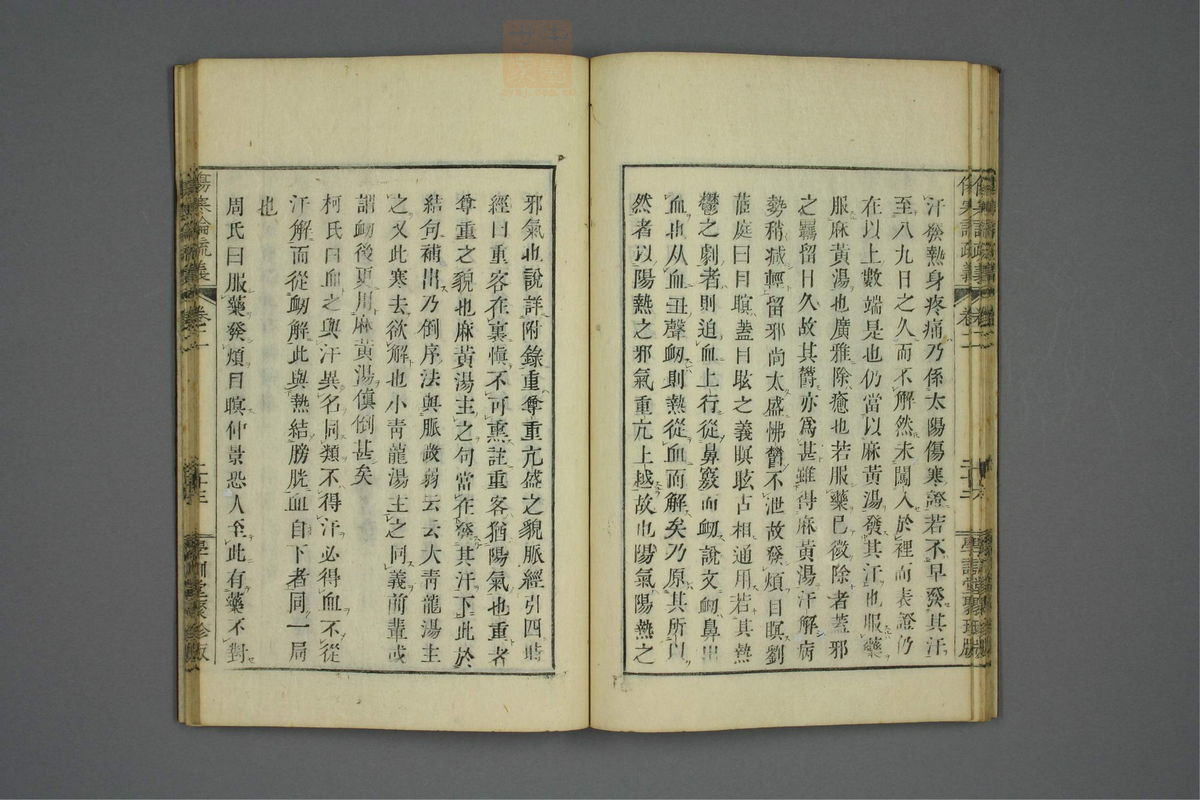 汗發熱身疼痛乃係太陽傷寒證若不早發其汗
至八九日之久而不解然未闖入於裡而表證仍
在以上數端是也仍當以麻黃湯發其汗也服藥
服麻黃湯也廣雅除癒也若服藥已微除者蓋邪
之羈留日久故其欝亦爲甚雖得麻黃湯汗解病
勢稍减輕留邪尚太盛怫欝不泄故發煩目瞑劉
茝庭曰目瞑蓋目眩之義瞑眩古相通用若其熱
鬱之劇者則迫血上行從鼻竅而衂說文衂鼻出
血也从血丑聲衂則熱從血而解矣乃原其所以
然者以陽熱之邪氣重亢上越故也陽氣陽熱之
傷寒論疏義
卷二
學訓堂聚珍版
邪氣也說詳附錄重尊重亢盛之貌脈經引四時
經曰重客在裏愼不可熏註重客猶陽氣也重者
尊重之貌也麻黃湯主之句當在發其汗下此於
結句補出乃倒序法與脈微弱云云大靑龍湯主
之又此寒去欲解也小靑龍湯主之同義前輩或
謂衂後更用麻黃湯傎倒甚矣
柯氏曰血之與汗異名同類不得汗必得血不從
汗解而從衂解此與熱結膀胱血自下者同一局
也
周氏曰服藥發煩目瞑仲景恐人至此有藥不對
傷寒論疏義
卷二
學訓堂聚珍版